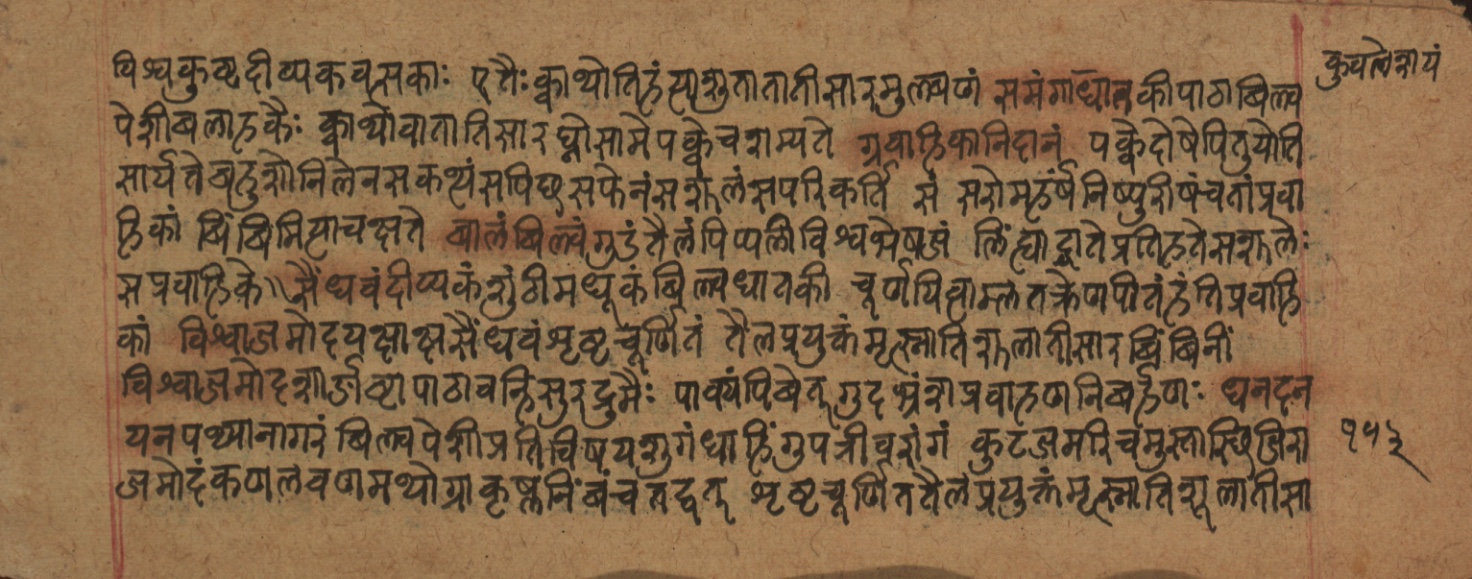 विश्वकुष्टदीप्यकवत्सकाः एतैः क्वाथोतिहंत्याशुतातातीसारमुल्वणं समंगाधातकीपाठाबिल्व
पेशीबलाहकैः क्वाथोवातातिसारघ्नोसामेपक्वेचशम्यते प्रवाहिकानिदानं पक्वेदोषेपितुयोति
सार्यतेबहुशोनिलेनसकथ्यंसपिछसफेनंसशूलंसपरिकर्ति सं सरोमहर्षंनिष्पुरीषंचतांप्रवा
हिकां बिंबिमित्याचक्षते बालंबिल्वंगुडंतैलंपिप्पलीविश्वभेषजं लिंह्याद्वातेप्रतिहतेसशूलेः
सप्रवाहिके॥सैंधवंदीप्यकंशुंठीमधूकंबिल्वधातकी चूर्णयित्वाम्लतक्रेणपीतंहंतिप्रवाहि
कां विश्वाजमोदयक्षाक्षसैंधवंभृष्टचूर्णितं तैलप्रयुक्तंमृत्स्नातिशूलातीसारबिंबिनीं
विश्वाजमोदशार्ङ्गष्टापाठावन्हिसुरद्रुमैः पाक्यंपिबेत्गुदभ्रंशप्रवाहणनिबर्हणः घनदन
यनपथ्यानागरं बिल्वपेशीप्रतिविषयशुगंधाहिंगुपत्रीवरांगं कुटजमरिचमुस्ता
जमोदंकणलवणमथोग्राकृष्णनिंबंचतद्वत् भृष्टचूर्णिततैलप्रयुक्तंमृत्स्नातिशूलातीसा
१५३